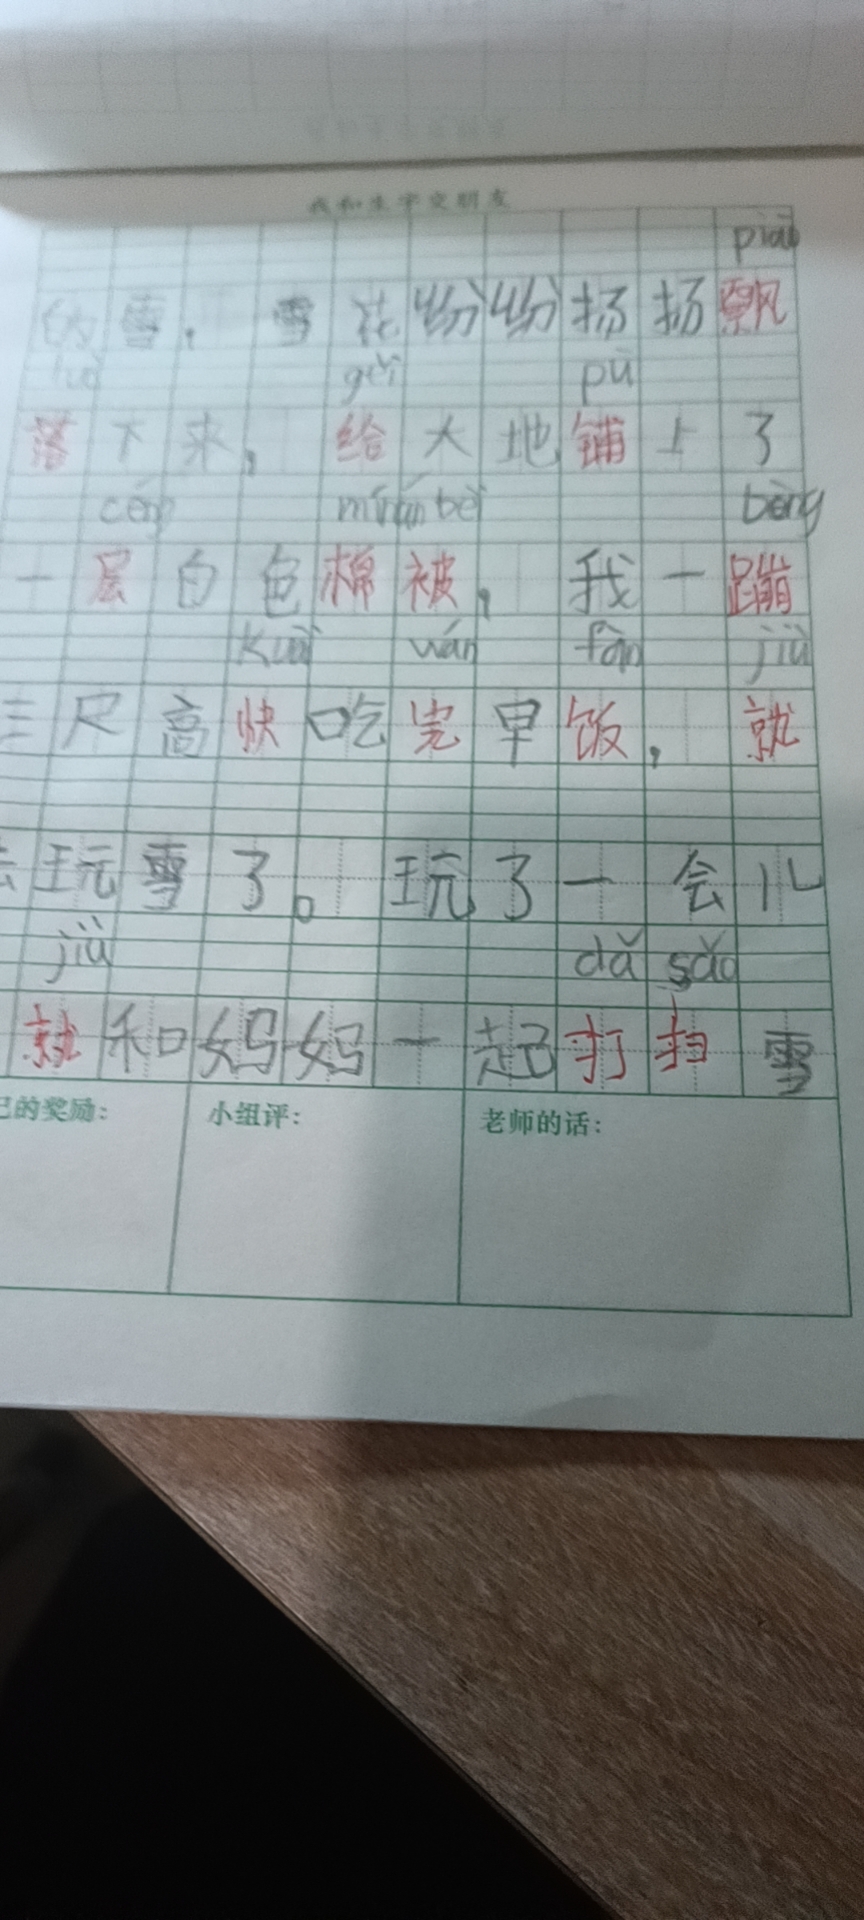 我和生字交朋友
piāo
雪，雪花纷纷扬扬飘
luò gěi pū
落下来，给大地铺上了
céng mián bèi bèng
一层白色棉被，我一蹦
kuài wán fàn jiù
三尺高快吃完早饭，就
去玩雪了。玩了一会儿
jiù dǎ sǎo
就和妈妈一起打扫雪
己的奖励： 小组评： 老师的话：